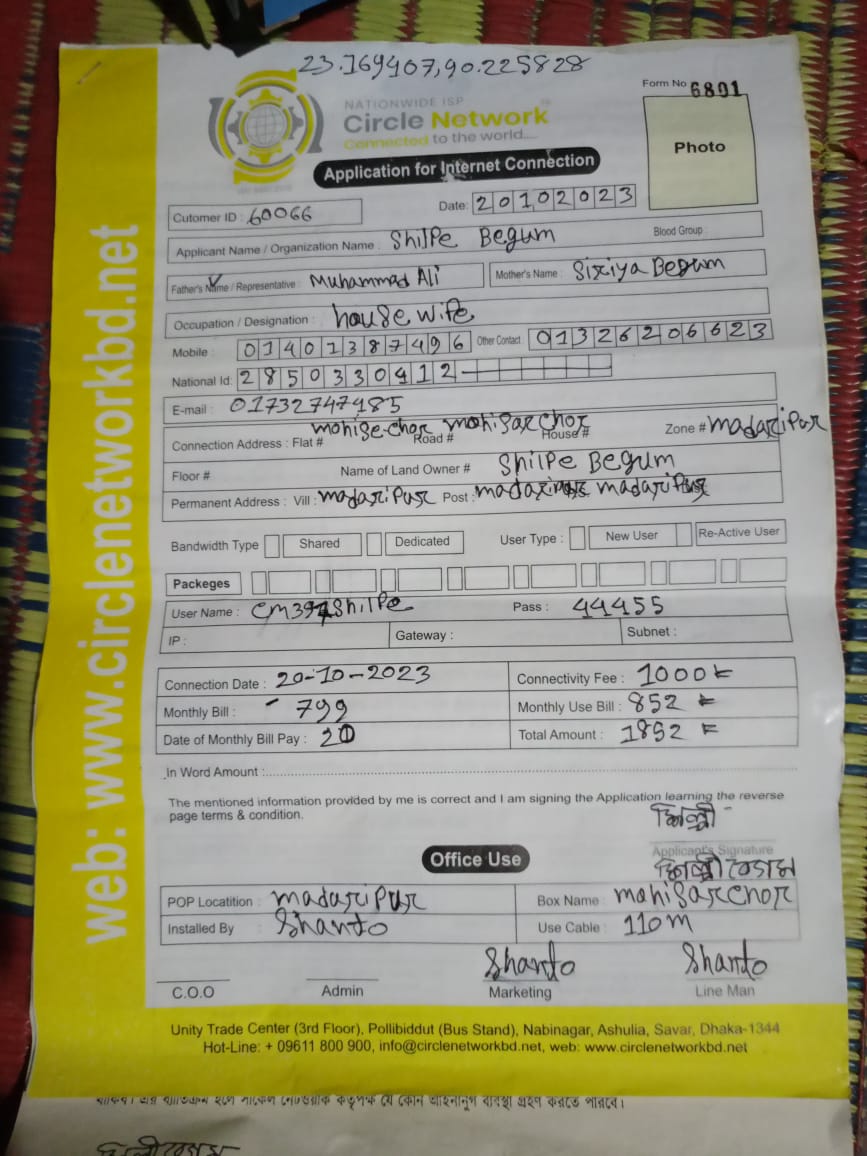 23.169407,90.225828
Form No 6801
NATIONWIDE ISP
Circle Network
Connected to the world....
Photo
Application for Internet Connection
Cutomer ID : 60066
Date: 20102023
Applicant Name / Organization Name : Shilpe Begum Blood Group :
Father's Name / Representative : Muhammad Ali Mother's Name : Sixiya Begum
Occupation / Designation : house wife
Mobile : 01401387496 Other Contact : 01326206623
National Id: 2850330912
E-mail : 01732747985
Connection Address : Flat # Mohise-Chor Road # Mohisar Chor House # Zone # madaripur
Floor # Name of Land Owner # Shilpe Begum
Permanent Address : Vill : madaripur Post : madaripur
Bandwidth Type Shared Dedicated User Type : New User Re-Active User
Packeges
User Name : Pass : 44455
IP : Gateway : Subnet :
Connection Date : 20-10-2023 Connectivity Fee : 1000
Monthly Bill : 799 Monthly Use Bill : 852
Date of Monthly Bill Pay : 20 Total Amount : 1852
In Word Amount :
The mentioned information provided by me is correct and I am signing the Application learning the reverse
page terms & condition.
শিল্পী
Applicant's Signature
শিল্পী বেগম
Office Use
POP Locatition : madaripur Box Name : mohisarchor
Installed By : Shanto Use Cable : 110m
Shanto Shanto
C.O.O Admin Marketing Line Man
Unity Trade Center (3rd Floor), Pollibiddut (Bus Stand), Nabinagar, Ashulia, Savar, Dhaka-1344
Hot-Line: + 09611 800 900, info@circlenetworkbd.net, web: www.circlenetworkbd.net
web: www.circlenetworkbd.net
কর্তৃপক্ষ যে কোন আইনানুগ ব্যবস্থা গ্রহণ করতে পারবে।